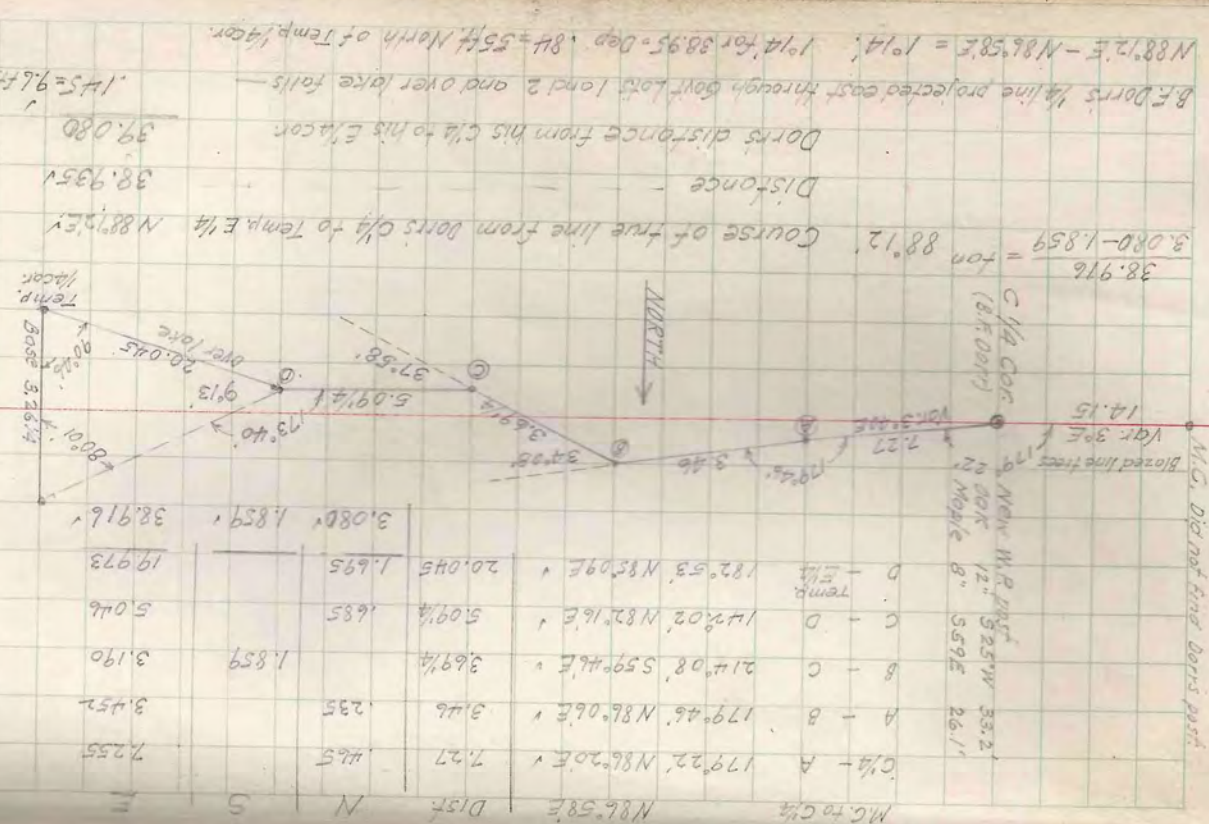 M.C. to C¼ N86°58'E DIST. N S E
C¼ - A 179°22' N86°20'E √ 7.27 .465 7.255
A - B 179°46' N86°06'E √ 3.46 .235 3.452
B - C 214°08' S59°46'E √ 3.69¼ 1.859 3.190
C - D 142°02' N82°16'E √ 5.09¼ .685 5.046
D - Temp. E¼ 182°53' N85°09'E √ 20.045 1.695 19.973
3.080 √ 1.859 √ 38.916 √
M.C. Did not find Dorrs post.
Blazed line trees
Var. 3°E
14.15
179°22'
New W.P. post
Oak 12" S25°W 33.2'
Maple 8" S59E 26.1'
C ¼ Cor.
(B.F. Dorr)
Var. 3°40'E
7.27
A
179°46'
3.46
B
34°08'
3.69¼
C
37°58'
5.09¼
D
173°40'
9°13'
20.045
over lake
80°01'
Base 3.26¼
Temp.
¼ cor.
NORTH
3.080-1.859
38.916
= tan 88°12' Course of true line from Dorrs C¼ to Temp. E¼ N88°12'E √
Distance - 38.935 √
Dorrs distance from his C¼ to his E¼ cor. 39.080
.145 = 9.6 ft
B.F. Dorrs ¼ line projected east through Govt Lots 1 and 2 and over lake falls —
N88°12'E - N86°58'E = 1°14' 1°14' for 38.95 = Dep. .84 = 55.4 ft. North of Temp. ¼ cor.